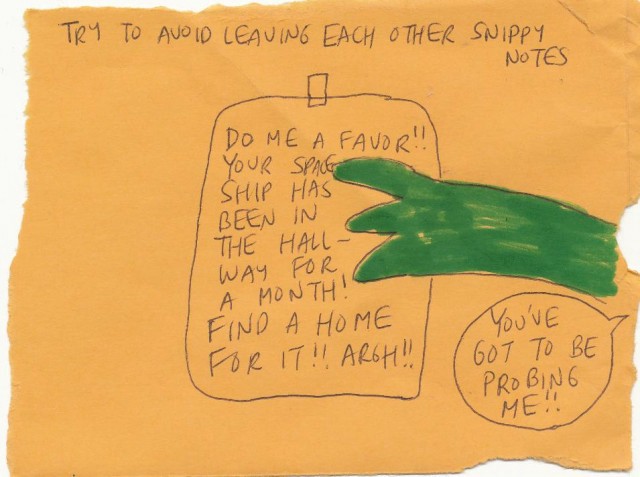 TRY TO AVOID LEAVING EACH OTHER SNIPPY
NOTES
DO ME A FAVOR!!
YOUR SPACE
SHIP HAS
BEEN IN
THE HALL-
WAY FOR
A MONTH!
FIND A HOME
FOR IT!! ARGH!!
YOU'VE
GOT TO BE
PROBING
ME!!